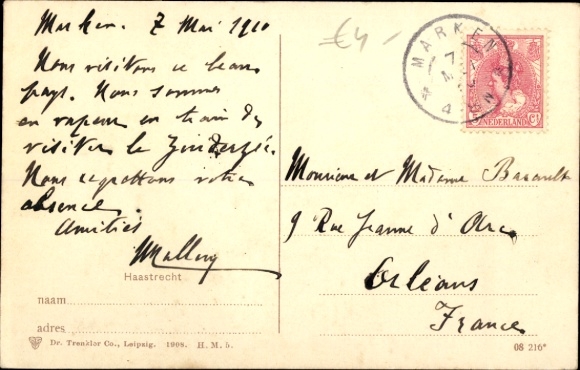 Marken. 7 Mai 1910
Nous visitons ce beau
pays. Nous sommes
en vapeur en train de
visiter le Zuiderzée.
Nous regrettons votre
absence.
Amitiés
Haastrecht
naam
adres
Dr. Trenkler Co., Leipzig. 1908. H. M. 5.
€4,-
MARKEN
7 M
4-8N
NEDERLAND
Monsieur et Madame
9 Rue Jeanne d'Arc
Orléans
France
08 216*